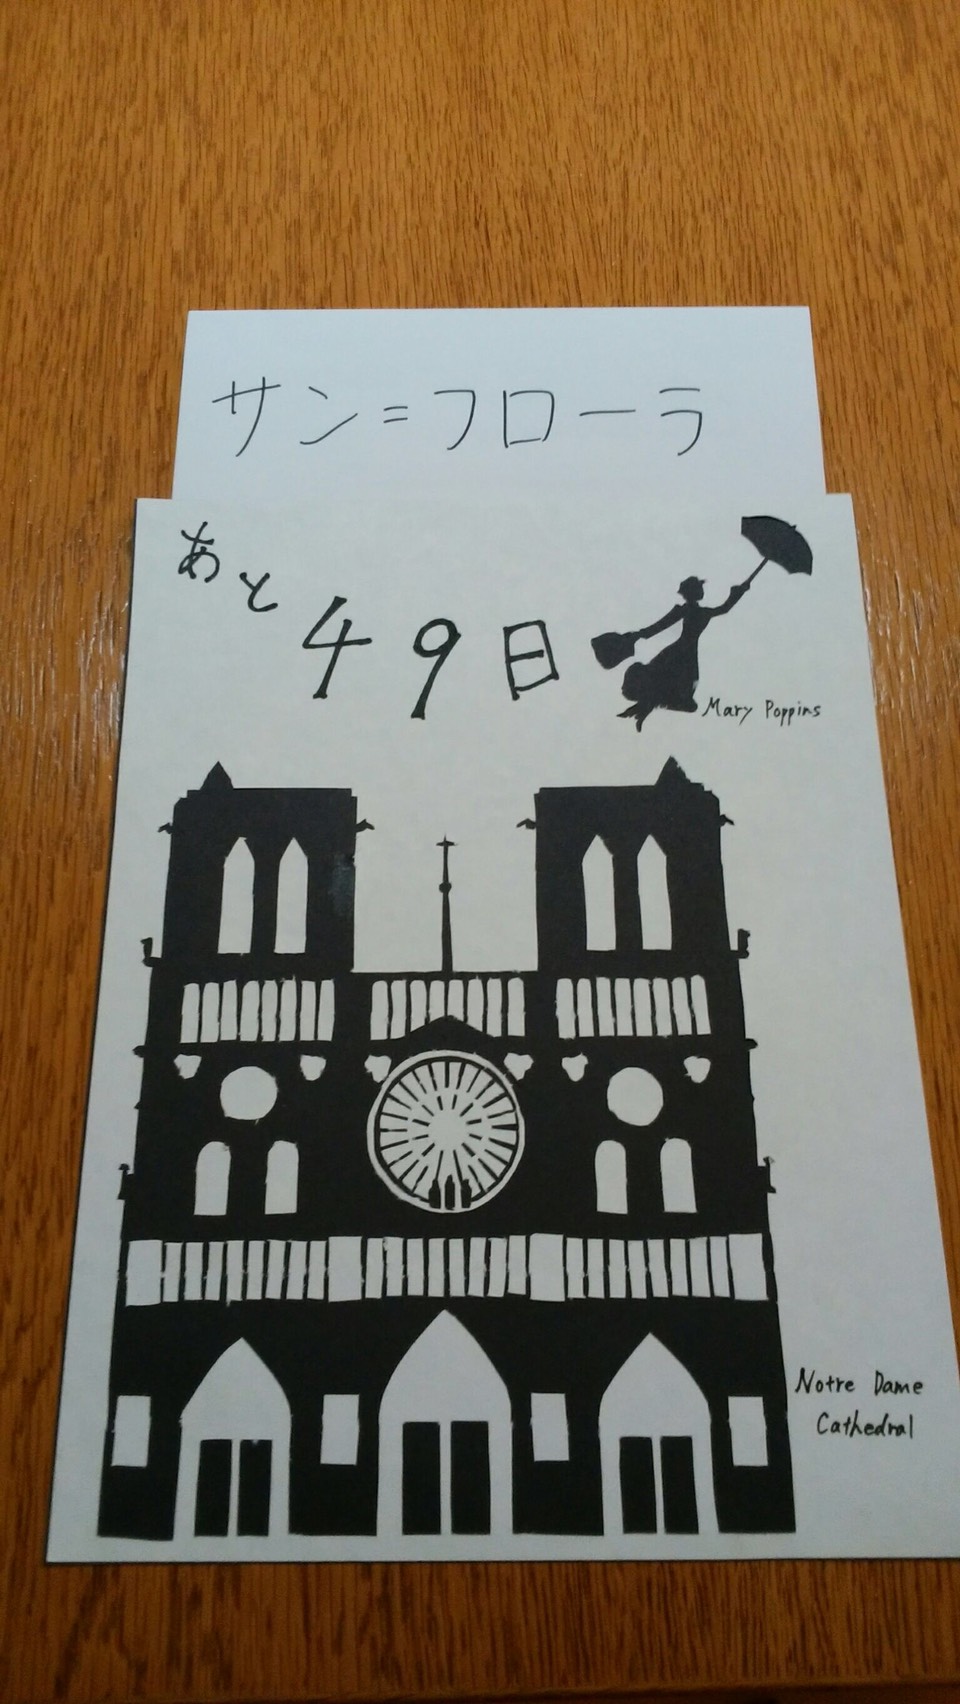 サン=フローラ
あと49日
Mary Poppins
Notre Dame
Cathedral